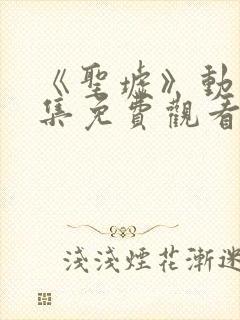 《聖墟》動
集免費觀看
淺淺煙花漸迷